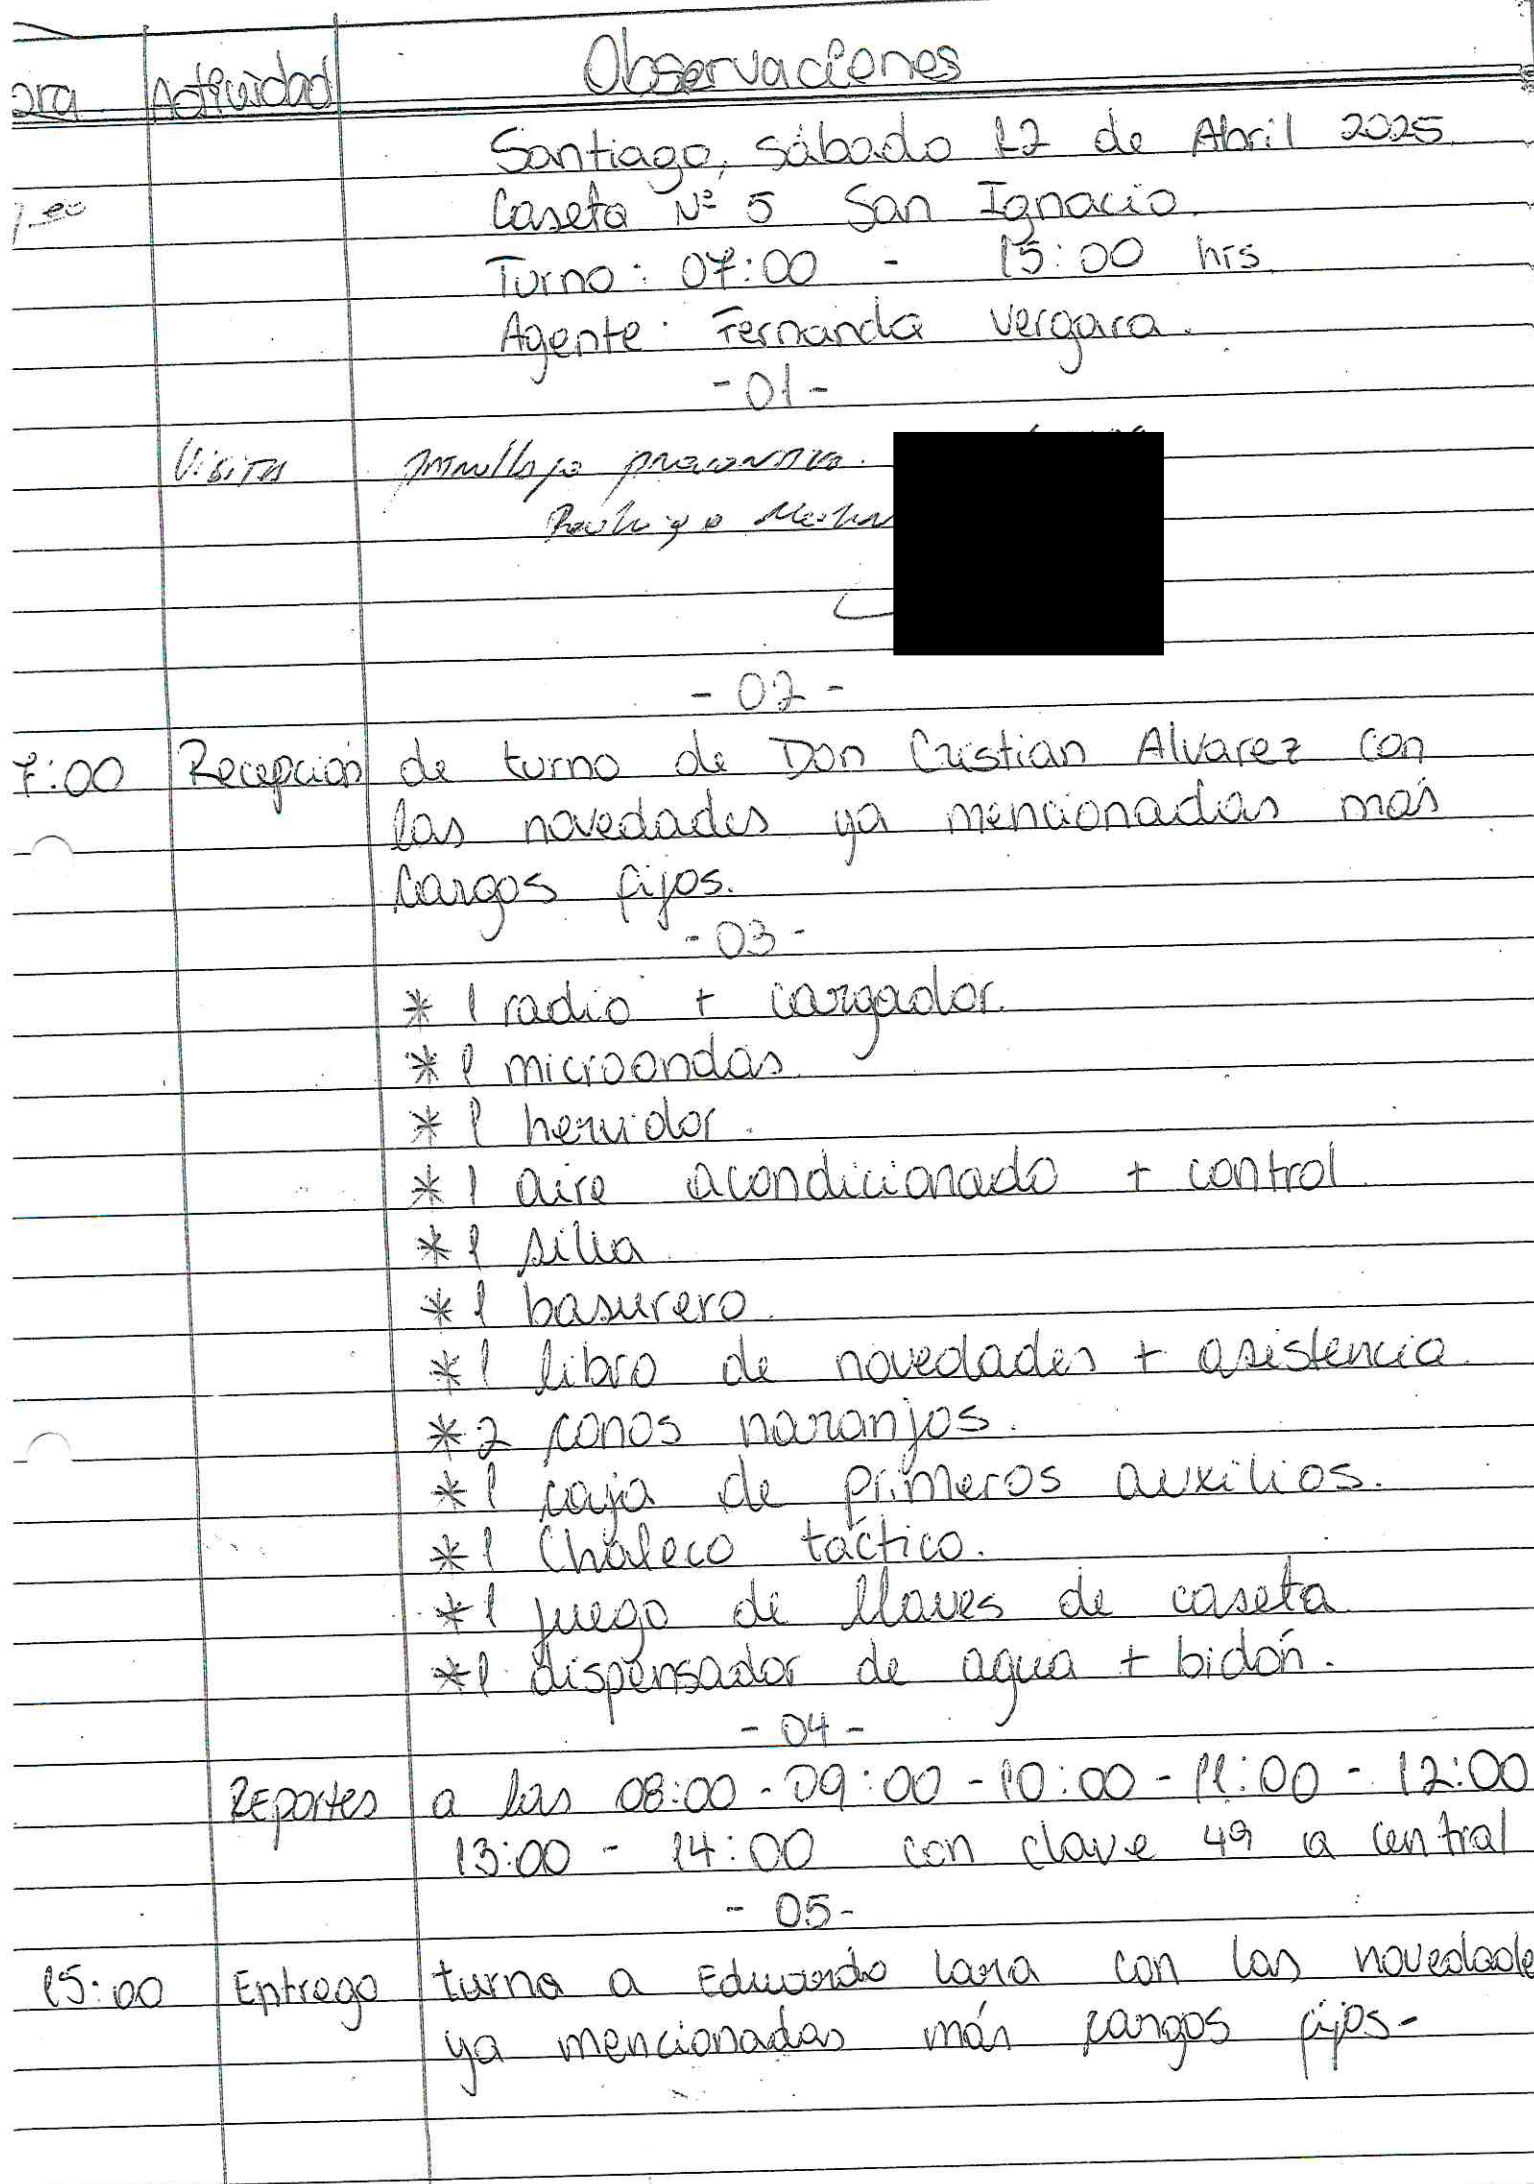 ora Actividad Observaciones
Santiago, sábado 12 de Abril 2025.
Caseta N° 5 San Ignacio.
Turno: 07:00 - 15:00 hrs.
Agente: Fernanda Vergara.
-01-
Visita patrullaje preventivo.
Rodrigo
-02-
7:00 Recepción de turno de Don Cristian Alvarez con
las novedades ya mencionadas más
cargos fijos.
-03-
* 1 radio + cargador.
* 1 microondas.
* 1 hervidor.
* 1 aire acondicionado + control
* 1 silla
* 1 basurero.
* 1 libro de novedades + asistencia.
* 2 conos naranjos.
* 1 caja de primeros auxilios.
* 1 Chaleco táctico.
* 1 juego de llaves de caseta
* 1 dispensador de agua + bidón.
-04-
Reportes a las 08:00 - 09:00 - 10:00 - 11:00 - 12:00
13:00 - 14:00 con clave 49 a central
-05-
15:00 Entrego turno a Eduardo Lara con las novedade
ya mencionadas más cargos fijos-